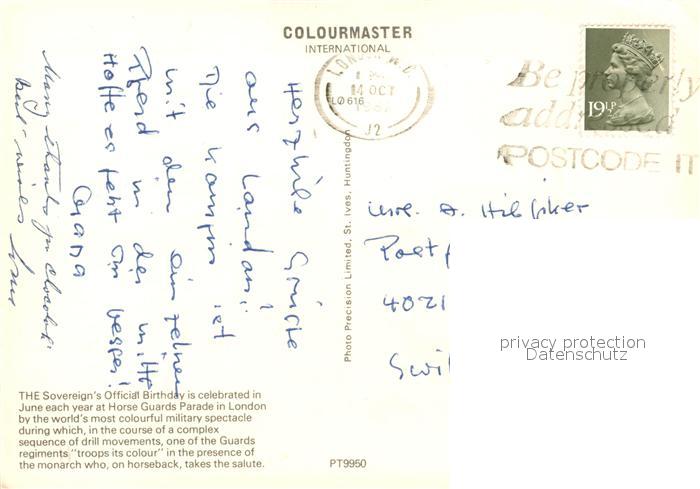 COLOURMASTER
INTERNATIONAL
LONDON W.C.
14 OCT
LØ 616
J2
Be properly
addressed
POSTCODE IT
19½P
Herzliche Grüsse
aus London!
Die Königin ist
mit dem einzelnen
Pferd in der Mitte
Hoffe es geht Dir besser!
Many thanks for chocolate
Best wishes
Photo Precision Limited, St. Ives, Huntingdon
A. Hilfiker
4021
privacy protection
Datenschutz
THE Sovereign's Official Birthday is celebrated in
June each year at Horse Guards Parade in London
by the world's most colourful military spectacle
during which, in the course of a complex
sequence of drill movements, one of the Guards
regiments "troops its colour" in the presence of
the monarch who, on horseback, takes the salute.
PT9950